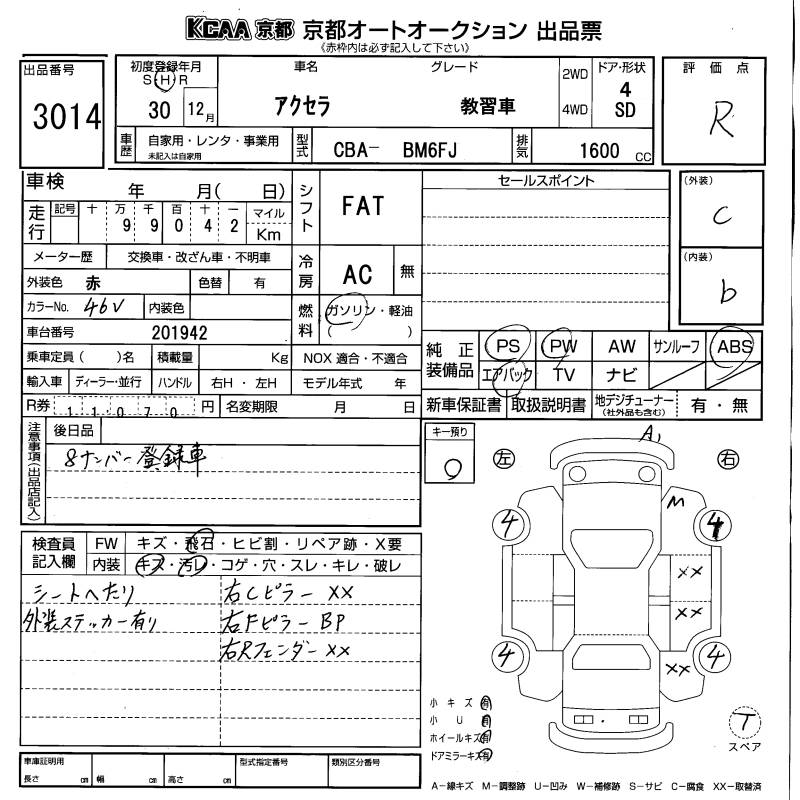 KCAA 京都 京都オートオークション 出品票
《赤枠内は必ず記入して下さい》
出品番号
3014
初度登録年月
S・H・R
30 12月
車名
アクセラ
グレード
教習車
2WD
4WD
ドア・形状
4
SD
評価点
R
車歴
自家用・レンタ・事業用
未記入は自家用
型式
CBA- BM6FJ
排気
1600 CC
車検 年 月( 日)
走行
記号 十 万 千 百 十 一 マイル
9 9 0 4 2 Km
シフト
FAT
セールスポイント
(外装)
C
(内装)
b
メーター歴 交換車・改ざん車・不明車
外装色 赤 色替 有
冷房
AC 無
カラーNo. 46V 内装色
燃料
ガソリン・軽油
( )
車台番号 201942
乗車定員( )名 積載量 Kg NOX 適合・不適合
輸入車 ディーラー・並行 ハンドル 右H・左H モデル年式 年
R券 11070 円 名変期限 月 日
純正装備品
PS PW AW サンルーフ ABS
エアバック TV ナビ
新車保証書 取扱説明書 地デジチューナー(社外品も含む) 有・無
注意事項(出品店記入)
後日品
8ナンバー登録車
キー預り
0
左
右
A1
M
4
4
XX
XX
4
XX
4
検査員記入欄
FW キズ・飛石・ヒビ割・リペア跡・X要
内装 キズ・汚レ・コゲ・穴・スレ・キレ・破レ
シートへたり
外装ステッカー有り
右Cピラー XX
右Fピラー BP
右Rフェンダー XX
小キズ 有
小U 有
ホイールキズ 有
ドアミラーキズ 有
T
スペア
車庫証明用
長さ cm 幅 cm 高さ cm
型式指定番号
類別区分番号
A-線キズ M-調整跡 U-凹み W-補修跡 S-サビ C-腐食 XX-取替済